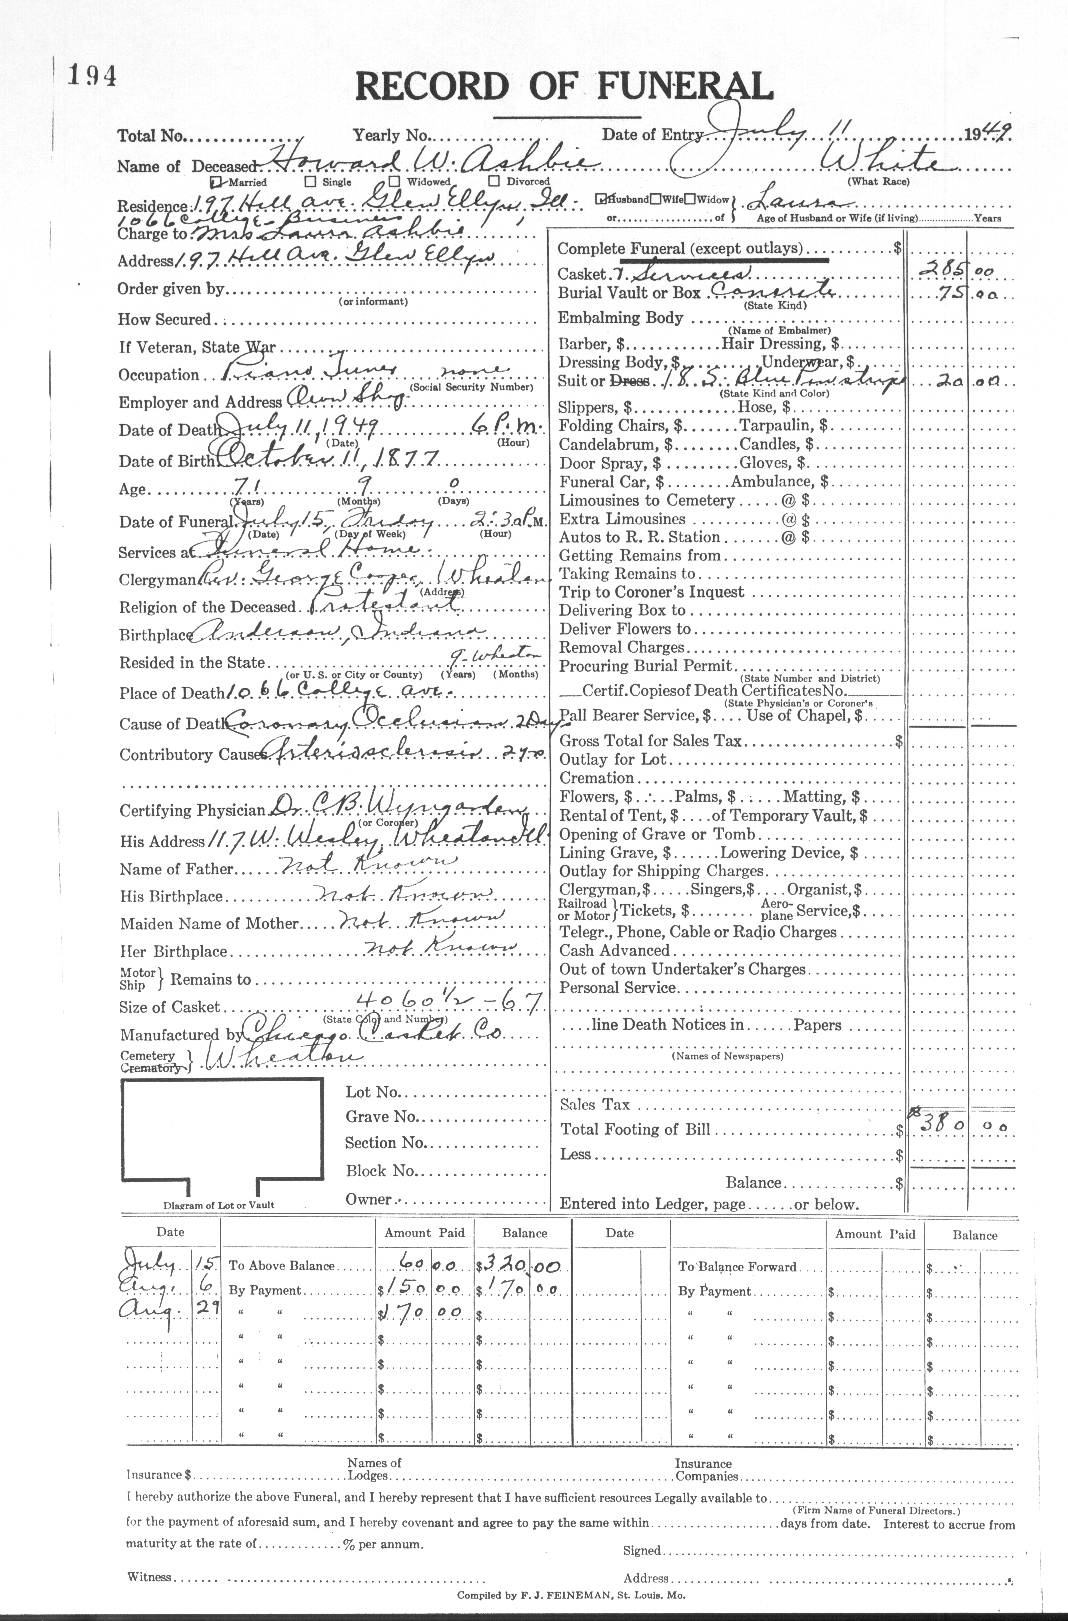 194
RECORD OF FUNERAL
Total No. Yearly No. Date of Entry July 11 1949
Name of Deceased Howard W. Ashbie White
Married Single Widowed Divorced (What Race)
Residence 197 Hill Ave. Glen Ellyn, Ill. Husband Wife Widow } Laura
1066 College - Business or of Age of Husband or Wife (if living) Years
Charge to Mrs Laura Ashbie
Address 197 Hill Ave. Glen Ellyn
Order given by
(or informant)
How Secured
If Veteran, State War
Occupation Piano Tuner none
(Social Security Number)
Employer and Address Own Shop
Date of Death July 11, 1949 6 P.M.
(Date) (Hour)
Date of Birth October 11, 1877
Age 71 9 0
(Years) (Months) (Days)
Date of Funeral July 15, Friday 2:30 P.M.
(Date) (Day of Week) (Hour)
Services at Funeral Home
Clergyman Rev. George Cooper Wheaton
(Address)
Religion of the Deceased Protestant
Birthplace Anderson, Indiana
Resided in the State 9 - Wheaton
(or U. S. or City or County) (Years) (Months)
Place of Death 1066 College Ave.
Cause of Death Coronary Occlusion 2 Days
Contributory Causes Arteriosclerosis 2 yrs
Certifying Physician Dr. C B. Wyngarden
(or Coroner)
His Address 117 W. Wesley, Wheaton Ill
Name of Father Not Known
His Birthplace Not Known
Maiden Name of Mother Not Known
Her Birthplace Not Known
Motor Ship } Remains to
Size of Casket 4060 1/2 - 67
(State Color and Number)
Manufactured by Chicago Casket Co
Cemetery Crematory } Wheaton
Lot No.
Grave No.
Section No.
Block No.
Owner
Diagram of Lot or Vault
Complete Funeral (except outlays) $
Casket & Services 285 00
Burial Vault or Box Concrete 75 00
(State Kind)
Embalming Body
(Name of Embalmer)
Barber, $ Hair Dressing, $
Dressing Body, $ Underwear, $
Suit or Dress 18 S. Blue Pin stripe 20 00
(State Kind and Color)
Slippers, $ Hose, $
Folding Chairs, $ Tarpaulin, $
Candelabrum, $ Candles, $
Door Spray, $ Gloves, $
Funeral Car, $ Ambulance, $
Limousines to Cemetery @ $
Extra Limousines @ $
Autos to R. R. Station @ $
Getting Remains from
Taking Remains to
Trip to Coroner's Inquest
Delivering Box to
Deliver Flowers to
Removal Charges
Procuring Burial Permit
(State Number and District)
Certif. Copies of Death Certificates No.
(State Physician's or Coroner's
Pall Bearer Service, $ Use of Chapel, $
Gross Total for Sales Tax $
Outlay for Lot
Cremation
Flowers, $ Palms, $ Matting, $
Rental of Tent, $ of Temporary Vault, $
Opening of Grave or Tomb
Lining Grave, $ Lowering Device, $
Outlay for Shipping Charges
Clergyman, $ Singers, $ Organist, $
Railroad or Motor } Tickets, $ Aeroplane Service, $
Telegr., Phone, Cable or Radio Charges
Cash Advanced
Out of town Undertaker's Charges
Personal Service
line Death Notices in Papers
(Names of Newspapers)
Sales Tax
Total Footing of Bill $ $380 00
Less $
Balance $
Entered into Ledger, page or below.
Date Amount Paid Balance Date Amount Paid Balance
July 15 To Above Balance 60 00 $320 00 To Balance Forward $
Aug. 6 By Payment $150 00 $170 00 By Payment $ $
Aug. 29 " " $170 00 $ " " $ $
" " $ $ " " $ $
" " $ $ " " $ $
" " $ $ " " $ $
" " $ $ " " $ $
" " $ $ " " $ $
Insurance $ Names of Lodges Insurance Companies
I hereby authorize the above Funeral, and I hereby represent that I have sufficient resources Legally available to
(Firm Name of Funeral Directors.)
for the payment of aforesaid sum, and I hereby covenant and agree to pay the same within days from date. Interest to accrue from
maturity at the rate of % per annum.
Signed
Witness Address
Compiled by F. J. FEINEMAN, St. Louis, Mo.